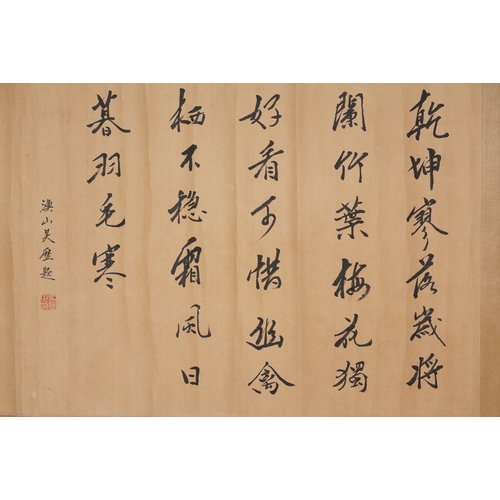 乾坤寥落歲將
闌竹葉梅花獨
好看可惜幽禽
栖不穩霜風日
暮羽毛寒
漁山吳歷題